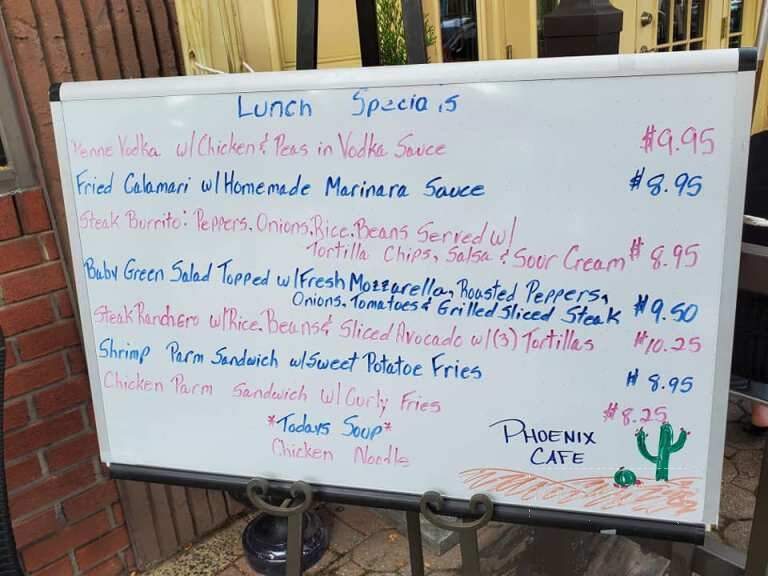 Lunch Specials
Penne Vodka w/Chicken & Peas in Vodka Sauce $9.95
Fried Calamari w/Homemade Marinara Sauce $8.95
Steak Burrito: Peppers, Onions, Rice, Beans Served w/
Tortilla Chips, Salsa & Sour Cream $8.95
Baby Green Salad Topped w/Fresh Mozzarella, Roasted Peppers,
Onions, Tomatoes & Grilled Sliced Steak $9.50
Steak Ranchero w/Rice, Beans & Sliced Avocado w/(3) Tortillas $10.25
Shrimp Parm Sandwich w/Sweet Potatoe Fries $8.95
Chicken Parm Sandwich w/Curly Fries $8.25
*Todays Soup*
Chicken Noodle
PHOENIX
CAFE